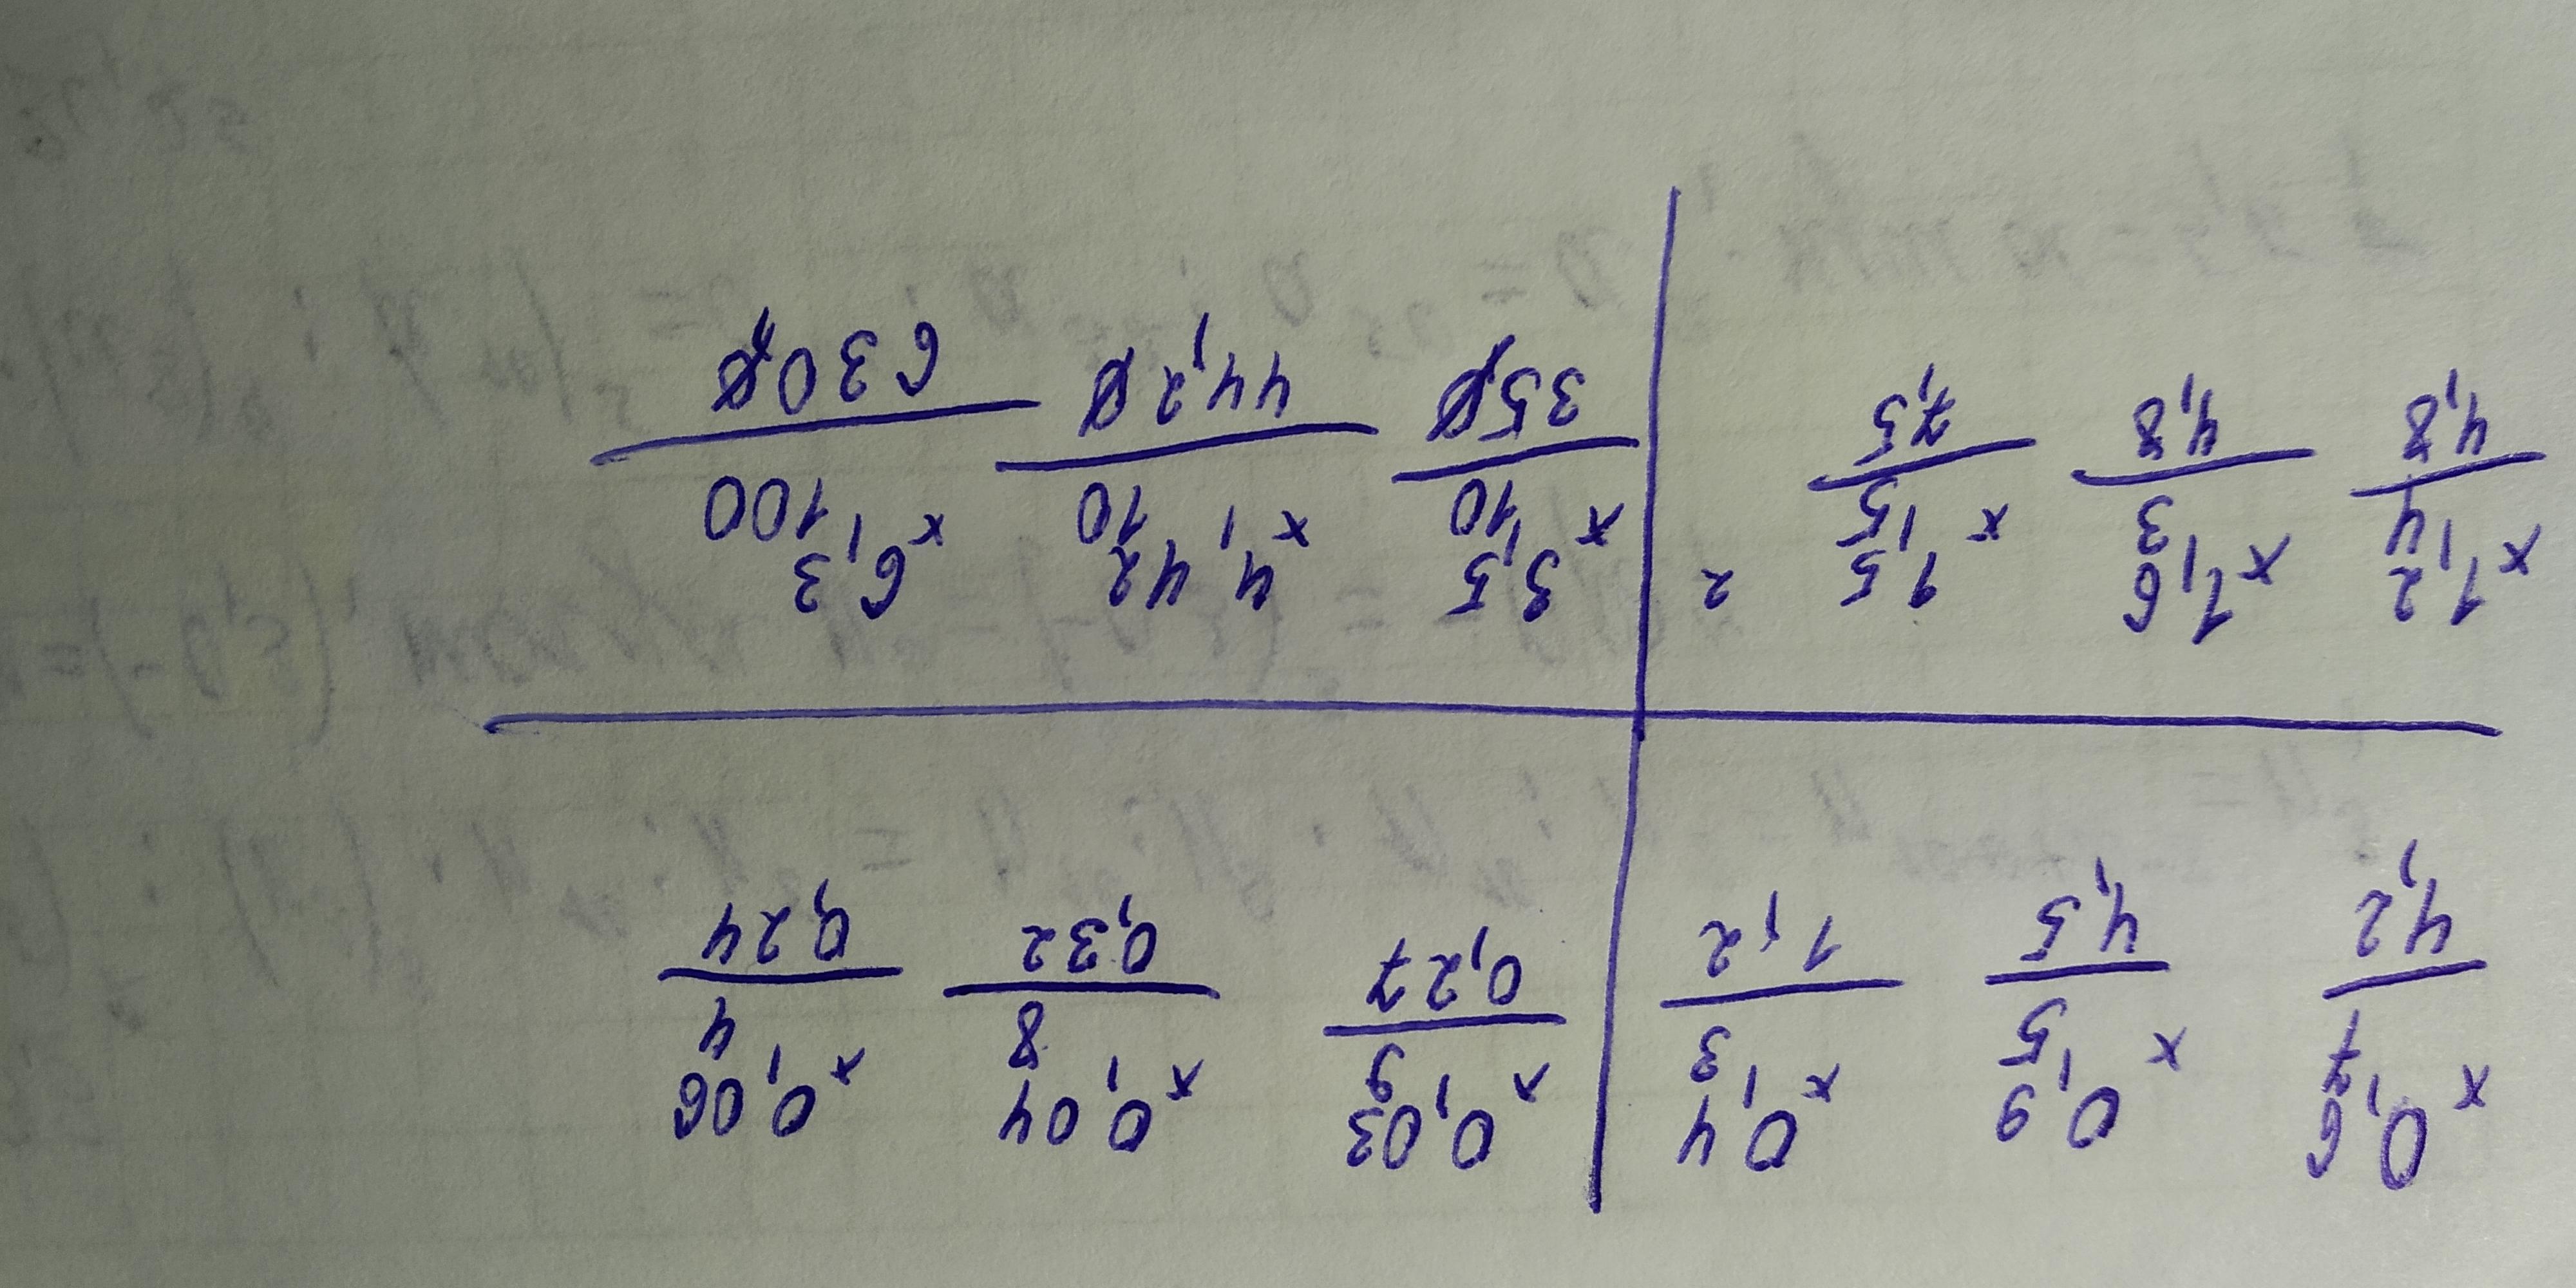 0,6 0,9 0,4 0,03 0,04 0,06
× 7 × 5 × 3 × 9 × 8 × 4
4,2 4,5 1,2 0,27 0,32 0,24
1,2 1,6 1,5 2 3,5 4,42 6,3
× 4 × 3 × 5 × 10 × 10 × 100
4,8 4,8 7,5 35,0 44,20 630,0